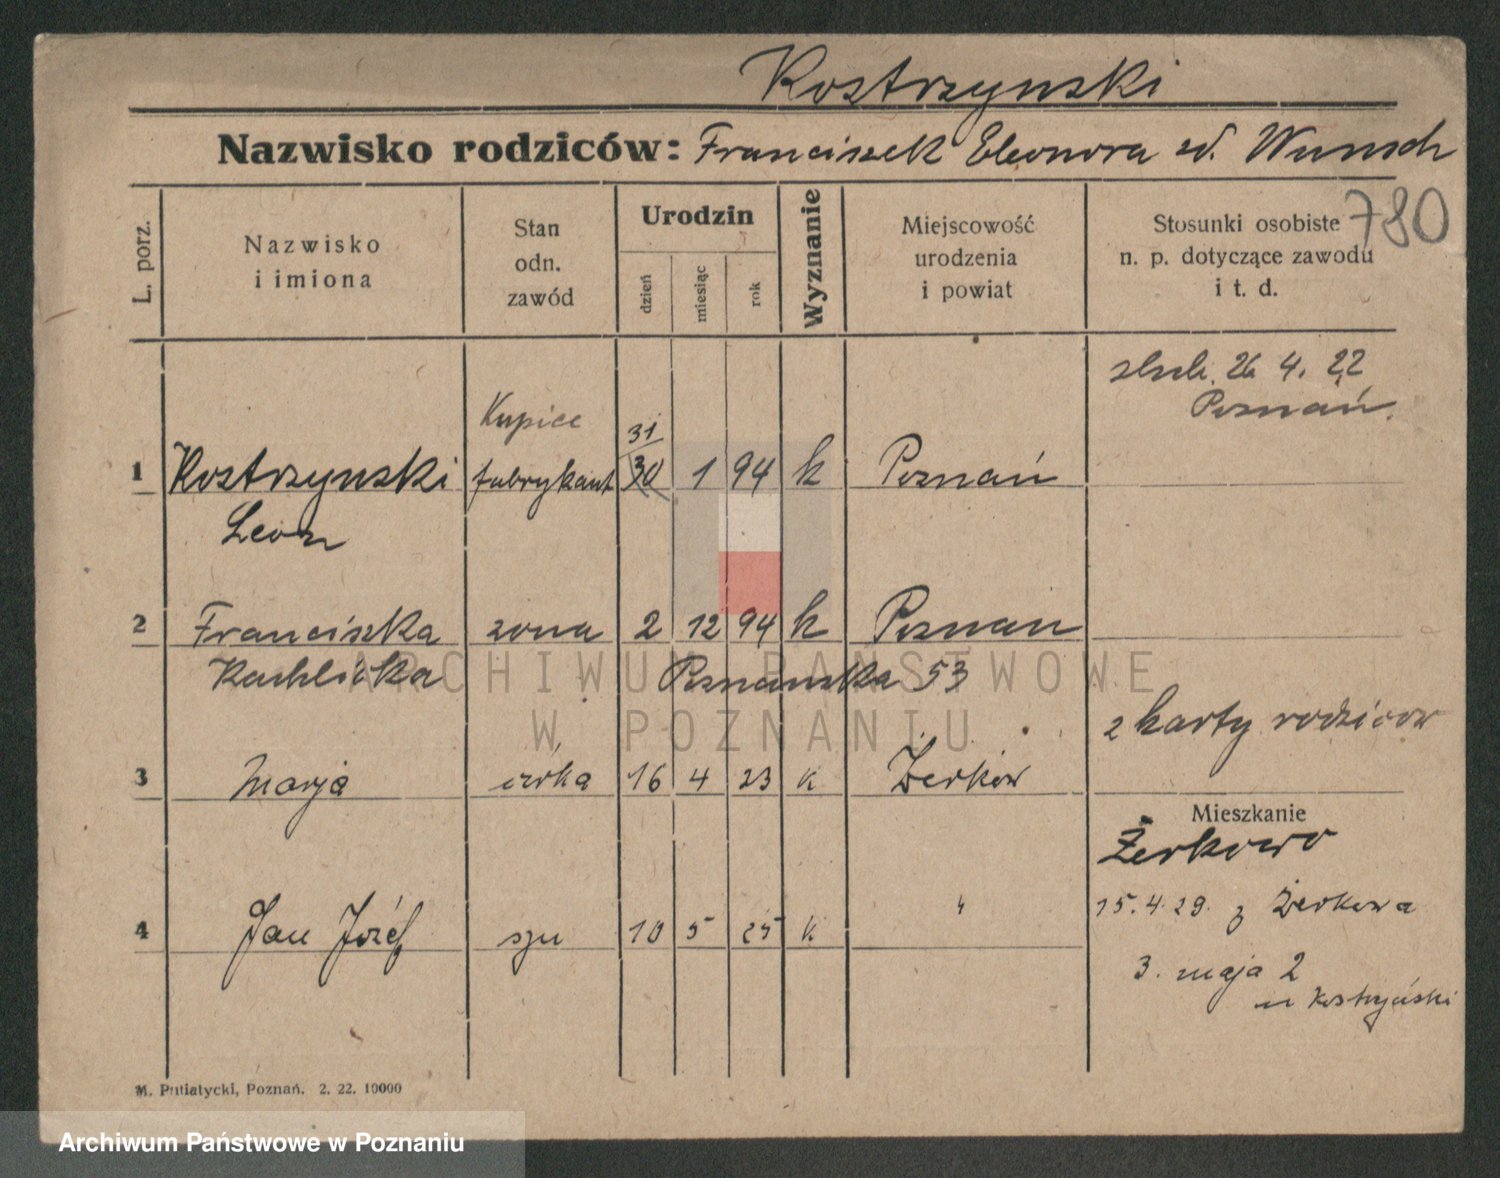 Kostrzynski
Nazwisko rodziców: Franciszek Eleonora zd. Wunsch
780
L. porz.
Nazwisko i imiona
Stan odn. zawód
Urodzin
dzień
miesiąc
rok
Wyznanie
Miejscowość urodzenia i powiat
Stosunki osobiste n. p. dotyczące zawodu i t. d.
ślub. 26 4. 22
Poznań.
Kupiec
31
1 Kostrzynski fabrykant 30 1 94 k Poznań
Leon
2 Franciszka zona 2 12 94 k Poznan
Kachlicka Poznanska 53
2 karty rodzicow
3 Marja córka 16 4 23 k Żerków
Mieszkanie
Żerkowo
4 Jan Józef syn 10 5 25 k "
15. 4. 29. z Żerkowa
3. maja 2
u Kostrzyński
M. Putiatycki, Poznań. 2. 22. 10000
ARCHIWUM PAŃSTWOWE
W POZNANIU
Archiwum Państwowe w Poznaniu